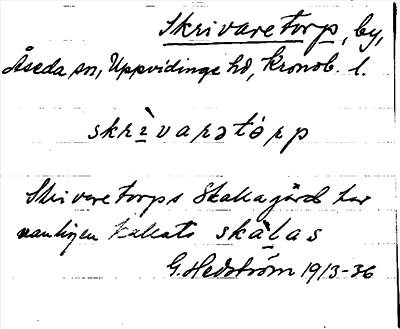 Skrivaretorp, by,
Åseda sn, Uppvidinge hd, Kronob. l.
skrìvarətó̀rp
Skrivaretorps Skallagård har
vanligen kallats skàlas
G. Hedström 1913-36